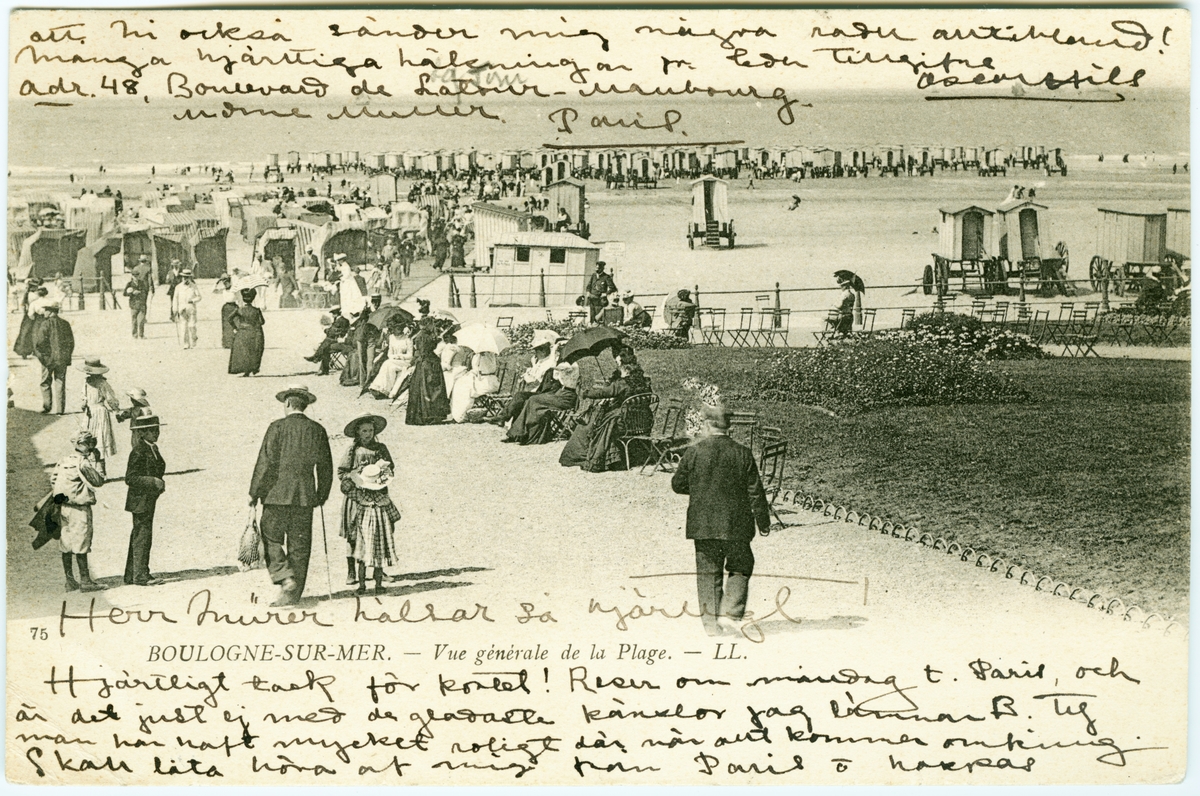 att Ni också sänder mig några rader antihland!
Många hjärtliga hälsningar fr. Eder Tillgifne
Oscar Hills
adr. 48, Boulevard de Latour-Maubourg.
Mdme Muller. Paris.
Herr Mürer hälsar så hjärtligt!
75
BOULOGNE-SUR-MER. — Vue générale de la Plage. — LL.
Hjärtligt tack för kortet! Reser om måndag t. Paris, och
är det just ej med de gladaste känslor jag lämnar B. Ty
man har haft mycket roligt där, när allt kommer omkring.
Skall låta höra af mig från Paris o hoppas